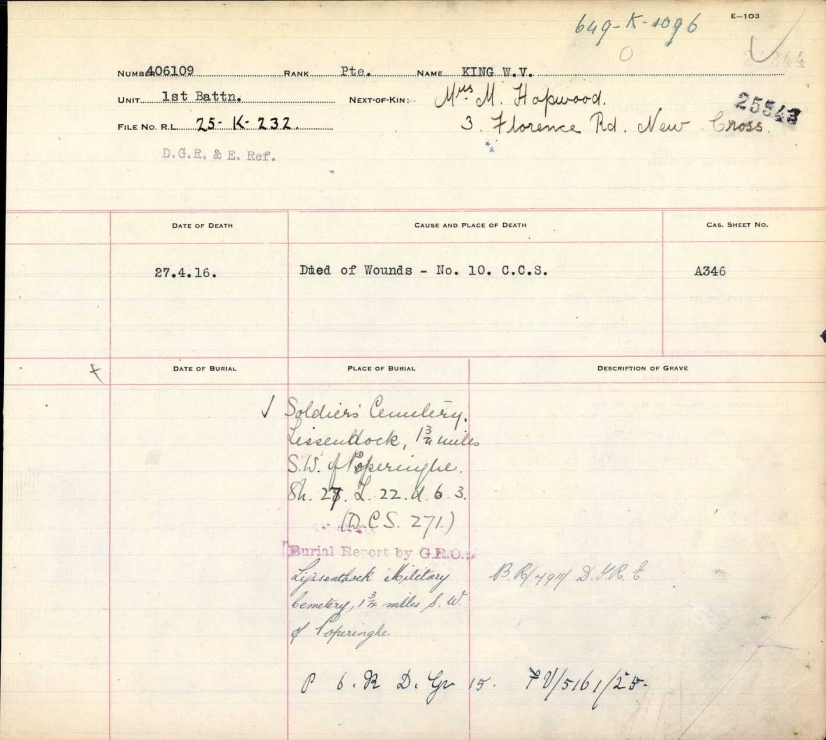 649-K-1096
E-103
NUMBER 406109 RANK Pte. NAME KING W.V.
UNIT 1st Battn. NEXT-OF-KIN: Mrs. M. Hopwood.
25543
FILE NO. R.L. 25-K-232. 3. Florence Rd. New Cross.
D.G.R. & E. Ref.
DATE OF DEATH CAUSE AND PLACE OF DEATH CAS. SHEET NO.
27.4.16. Died of Wounds - No. 10. C.C.S. A346
DATE OF BURIAL PLACE OF BURIAL DESCRIPTION OF GRAVE
Soldiers' Cemetery,
Lissenttock, 1 3/4 miles
S.W. of Poperinghe.
Sh. 27. L. 22. d. 6. 3.
(D.C.S. 271.)
Burial Report by G.R.O.
Lijssenthoek Military
Cemetery, 1 3/4 miles S. W.
of Poperinghe
P 6. R D. Gr 15.